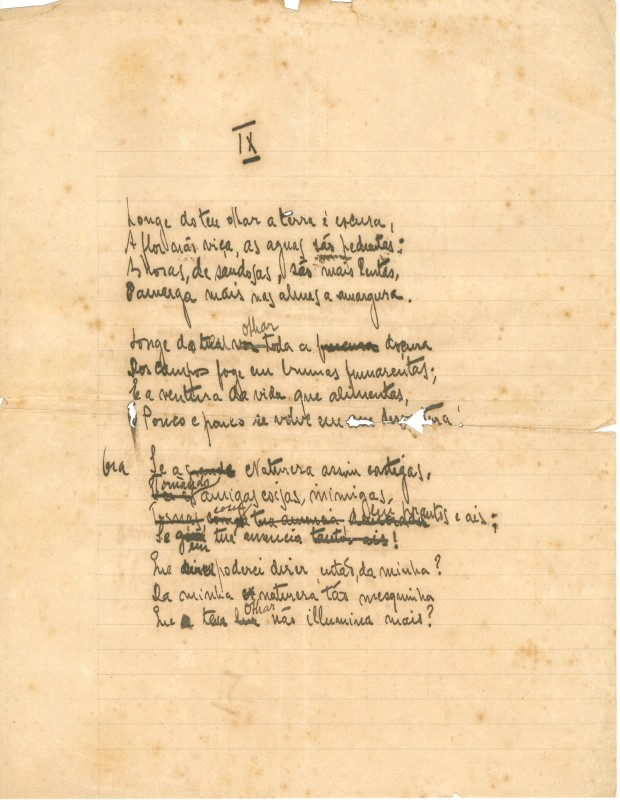 IX
Longe do teu olhar a terra é escura,
A flor não viça, as aguas são pedrentas:
As horas, de saudosas, são mais lentas,
amarga mais nas almas a amargura.
olhar
Longe do teu toda a doçura
Dos campos foge em brumas fumarentas;
E a ventura da vida que alimentas,
Pouco e pouco se volve em
Se a Natureza assim castigas,
Tornando
amigas coisas, inimigas,
prantos e ais;
Se em tua ausencia tantos ais!
Que poderei dizer, então, da minha?
Da minha natureza tão mesquinha
olhar
Que teu não illumina mais?